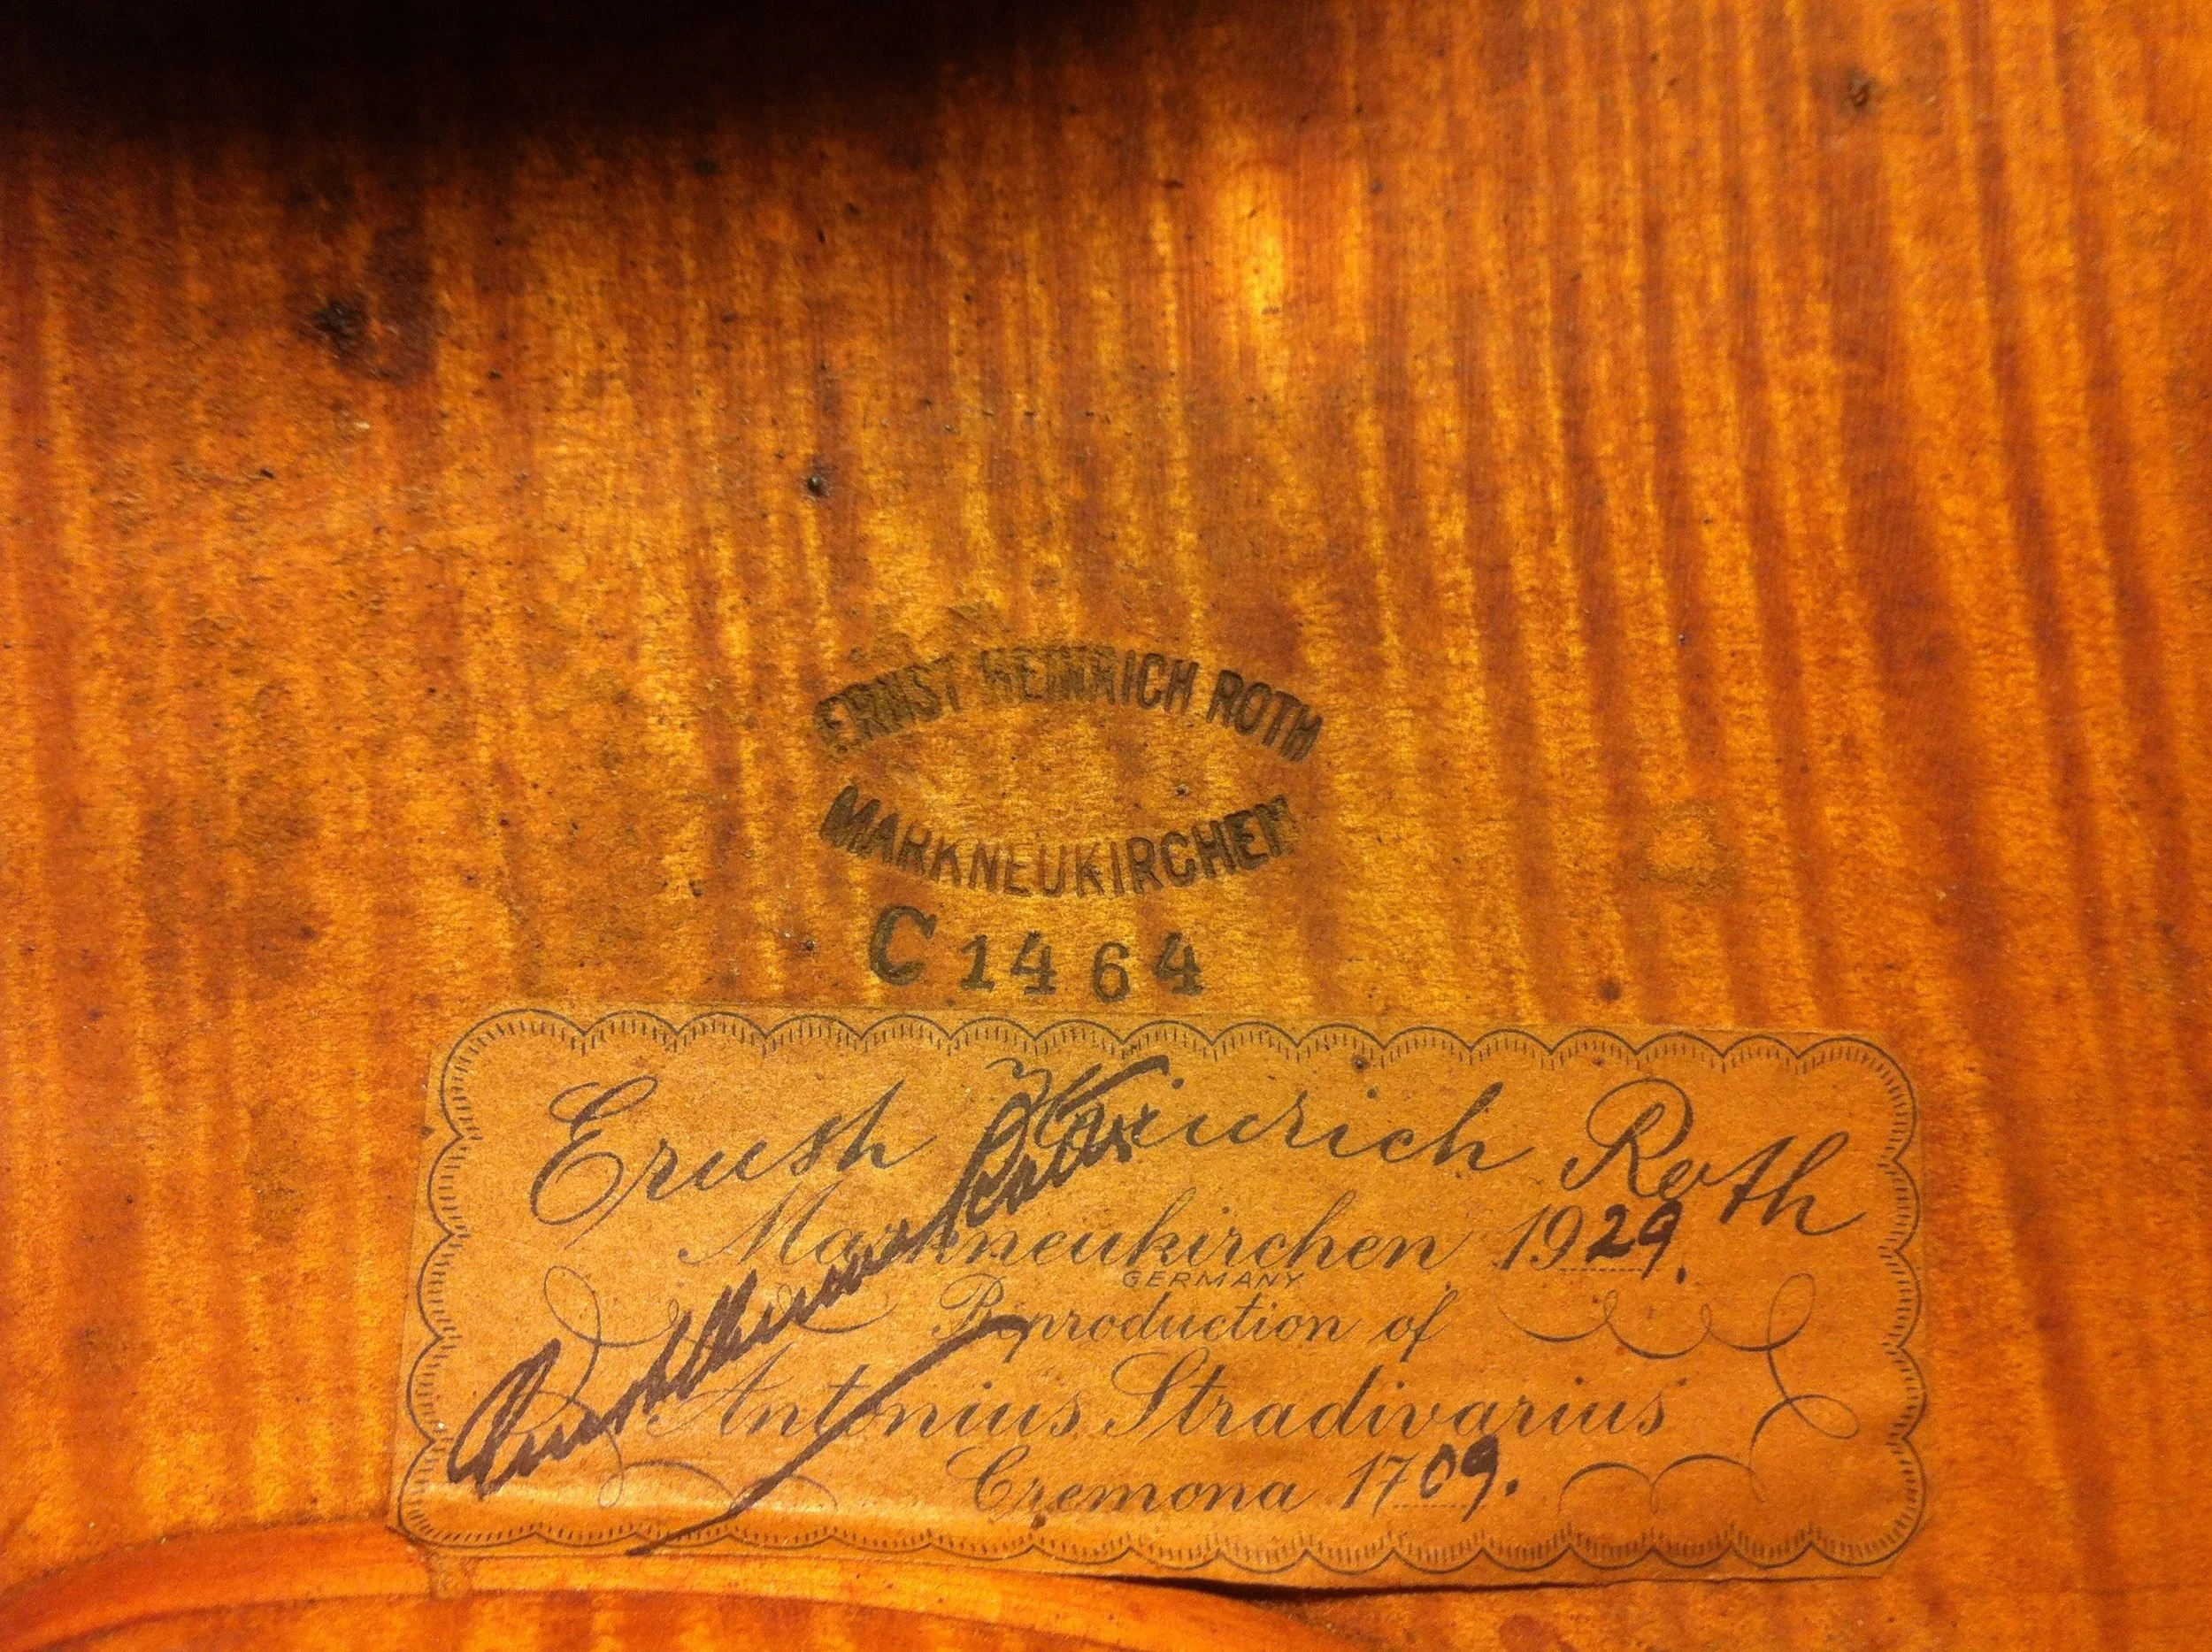 ERNST HEINRICH ROTH
MARKNEUKIRCHEN
C 1464
Ernst Heinrich Roth
Markneukirchen 1929.
GERMANY
Reproduction of
Antonius Stradivarius
Cremona 1709.